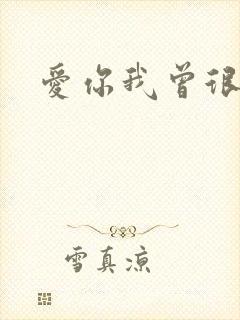 愛你我曾很
雪真凉